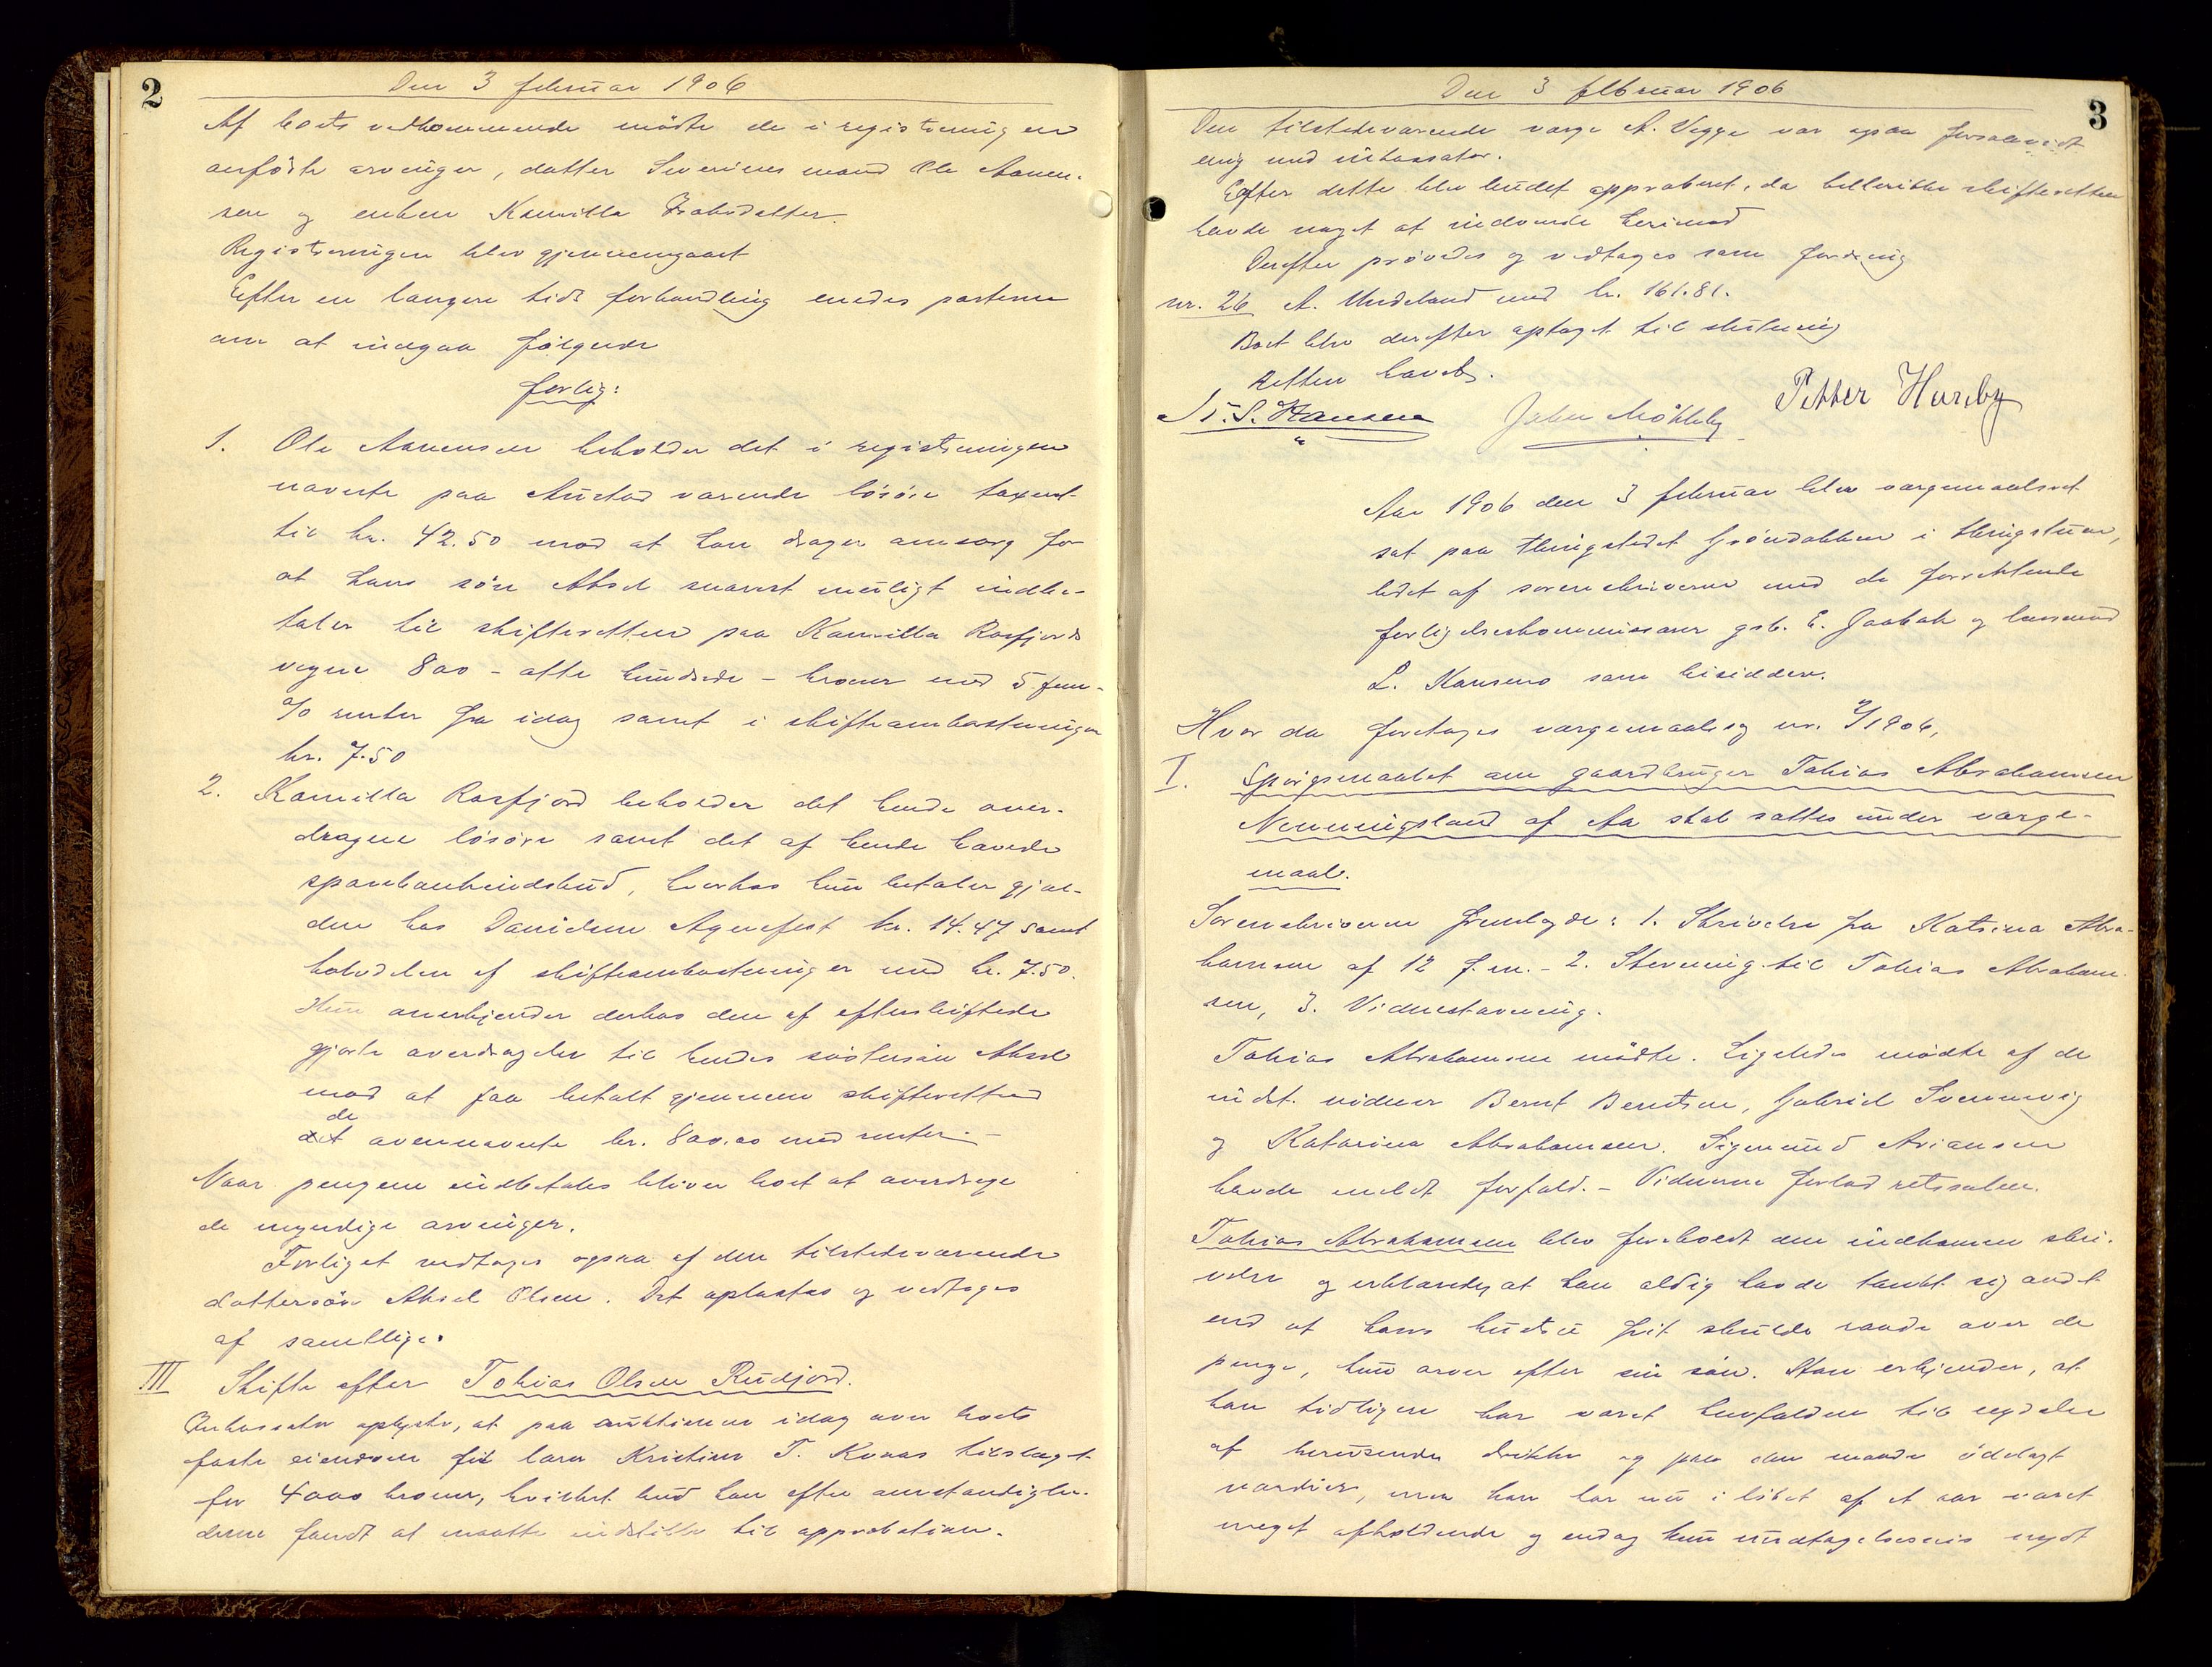 2
Den 3 februar 1906
Af boets vedkommende mødte de i registreringen
anførte arvinger, datter Severines mand Ole Aanen-
sen og enken Kamilla Isaksdatter.
Registreringen blev gjennemgaaet
Efter en længere tids forhandling enedes parterne
om at indgaa følgende
forlig:
1. Ole Aanensen beholder det i registreringen
nævnte paa Austad værende løsøre taxeret
til kr. 42.50 mod at han drager omsorg for
at hans søn Aksel snarest muligt indbe-
taler til skifteretten paa Kamilla Rosfjords
vegne 800 - otte hundrede - kroner med 5 fem-
% renter fra idag samt i skifteomkostninger
kr. 7.50
2. Kamilla Rosfjord beholder det hende over-
dragne løsøre samt det af hende havede
sparebankindskud, hvorhos hun betaler gjæl-
den hos Danielsen Agnefest kr. 14.47 samt
halvdelen af skifteomkostninger med kr. 7.50.
Hun anerkjender derhos den af efterskiftede
gjorte overdragelse til hendes søstersøn Aksel
mod at faa betalt gjennem skifteretten
de
det ovennævnte kr. 800.00 med renter. -
Naar pengene indbetales bliver boet at overdrage
de myndige arvinger.
Forliget vedtages ogsaa af den tilstedeværende
dattersøn Aksel Olsen. Det oplæstes og vedtoges
af samtlige.
III Skifte efter Tobias Olsen Rudjord.
Inkassator oplyste, at paa auktionen idag over boets
faste eiendom fik lærer Kristian T. Kvaas tilslaget
for 4000 kroner, hvilket bud han efter omstændighe-
derne fandt at maatte indstille til approbation.
3
Den 3 februar 1906
Den tilstedeværende værge A. Vegge var ogsaa forsaavidt
enig med inkassator.
Efter dette blev budet approberet, da hellerikke skifteretten
havde noget at indvende herimod
Derefter prøvedes og vedtoges som fordring
nr. 26 A. Undeland med kr. 161.81.
Boet blev derefter optaget til slutning
Retten hævet.
St. S. Hansen Petter Huseby
Aar 1906 den 3 februar blev værgemaalsret
sat paa thingstedet Grøndokken i thingstuen,
ledet af sorenskriveren med de forrettende
forligelseskommissærer gsb. E. Jaabæk og lensmand
L. Hansens som bisiddere.
Hvor da foretoges værgemaalssag nr. 2/1906,
I. Spørgsmaalet om gaardbruger Tobias Abrahamsen
Nenningsland af Aa skal sættes under værge-
maal.
Sorenskriveren fremlagde: 1. Skrivelse fra Katrina Abra-
hamsen af 12 f.m. - 2. Stevning til Tobias Abraham-
sen, 3. Vidnestævning.
Tobias Abrahamsen mødte. Ligeledes mødte af de
indst. vidner Bernt Berntsen, Gabriel Svennevig
og Katarina Abrahamsen. Sigmund Ariansen
havde meldt forfald. - Vidnerne forlod retssalen.
Tobias Abrahamsen blev foreholdt den indkomne skri-
velse og erklærede, at han aldrig havde tænkt sig andet
end at hans hustru frit skulde raade over de
penge, hun arver efter sin søn. Han erkjender, at
han tidligere har været henfalden til nydelse
af berusende drikke og paa den maade ødelagt
værdier, men han har nu i løbet af et aar været
meget afholdende og endog kun undtagelsesvis nydt